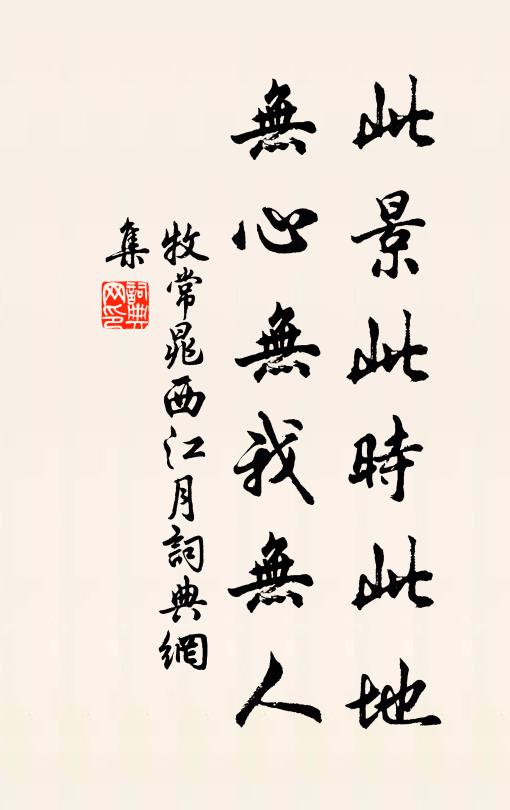 此景此時此地
無心無我無人
牧常晁西江月詞典網
集
詞典
网印